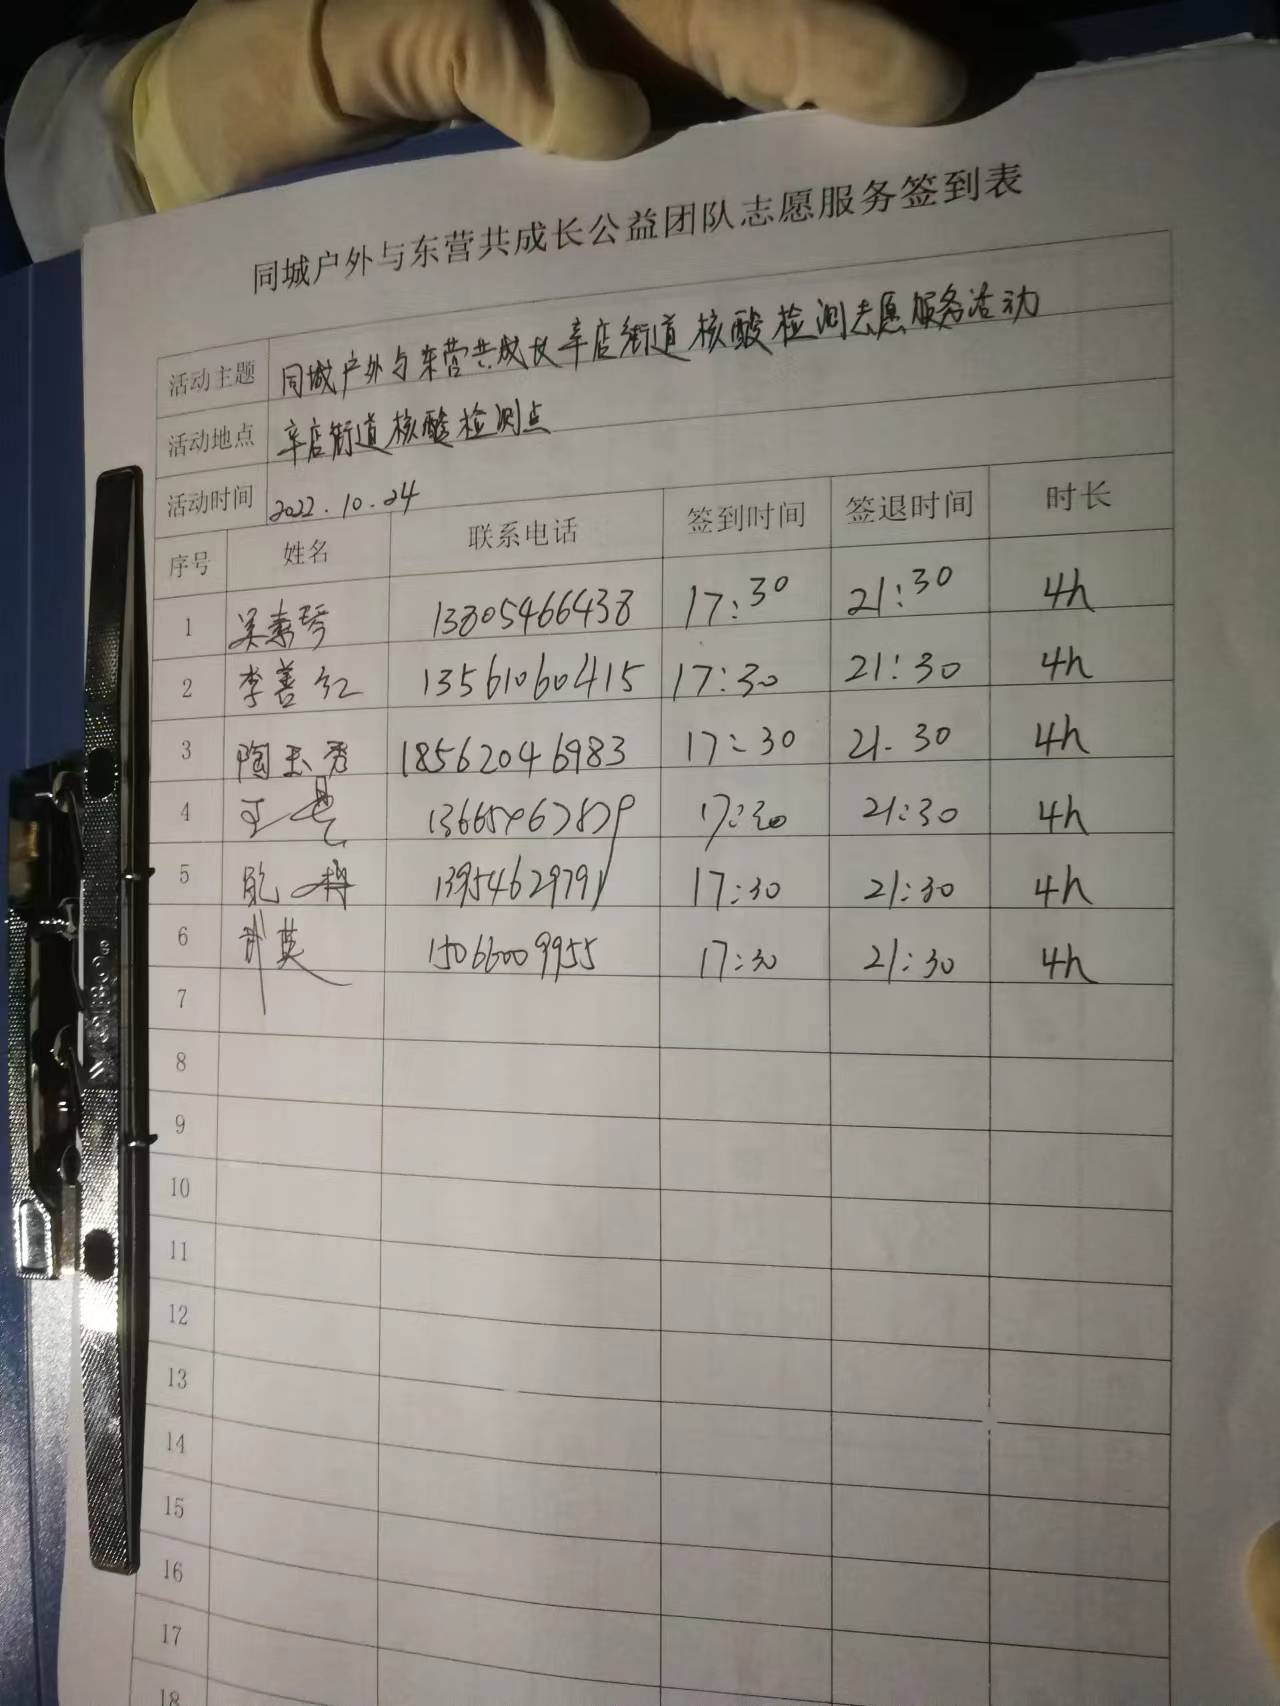 同城户外与东营共成长公益团队志愿服务签到表
活动主题 同城户外与东营共成长辛店街道核酸检测志愿服务活动
活动地点 辛店街道核酸检测点
活动时间 2022.10.24
序号 姓名 联系电话 签到时间 签退时间 时长
1 吴素琴 13805466438 17:30 21:30 4h
2 李善红 13561060415 17:30 21:30 4h
3 陶玉秀 18562046983 17:30 21:30 4h
4 王 17:30 21:30 4h
5 13954629791 17:30 21:30 4h
6 武英 15066009955 17:30 21:30 4h
7
8
9
10
11
12
13
14
15
16
17
18